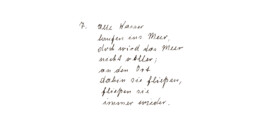 7. Alle Wasser
laufen ins Meer,
doch wird das Meer
nicht voller;
an den Ort
dahin sie fließen,
fließen sie
immer wieder.